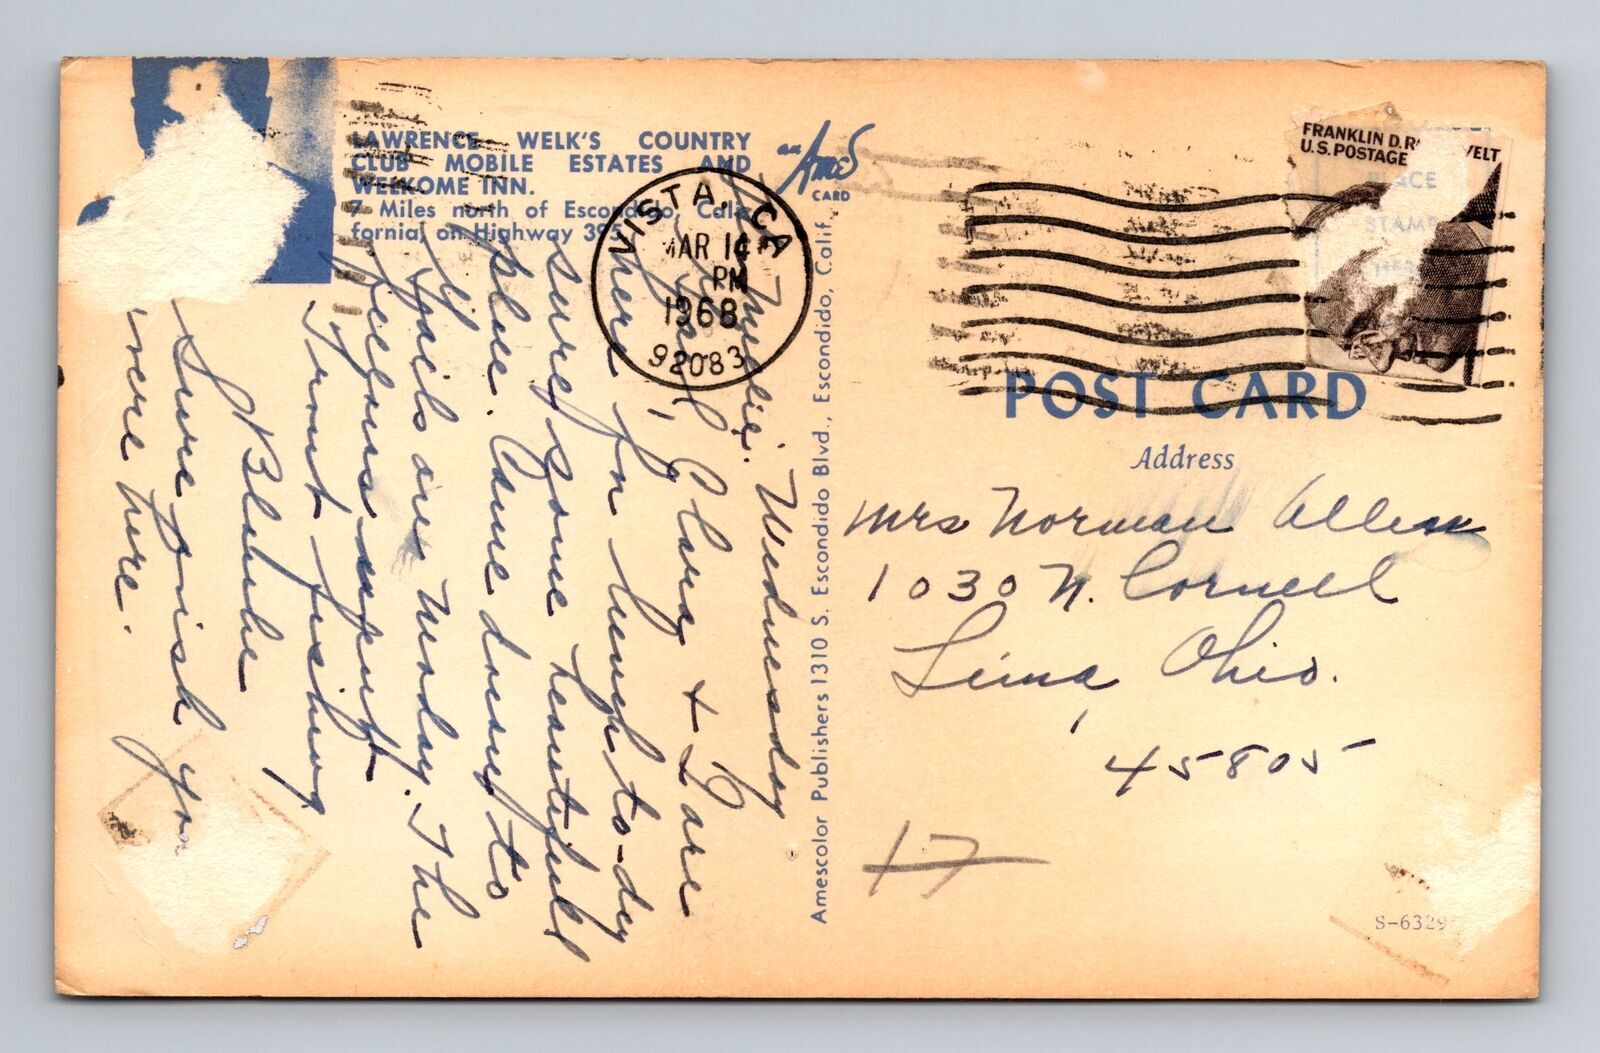 LAWRENCE WELK'S COUNTRY
CLUB MOBILE ESTATES AND
WELKOME INN.
7 Miles north of Escondido, Cali-
fornia, on Highway 395.
an Ames
CARD
VISTA, CA
MAR 14
PM
1968
92083
FRANKLIN D. R VELT
U.S. POSTAGE
PLACE
STAMP
HERE
POST CARD
Address
Mrs Norman Allen
1030 N. Cornell
Lima, Ohio.
45805
17
S-6329
Amescolor Publishers 1310 S. Escondido Blvd., Escondido, Calif.
Wednesday
Millie.
Clara & I are
here for lunch to-day
sure some beautifull
place. Came down to
Gails on Monday. The
fellows went
Trout fishing
Blanche
Sure wish you
were here.